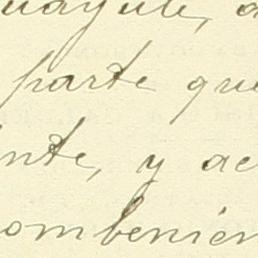 uayule, a
parte que
nte, y ac
ombenien